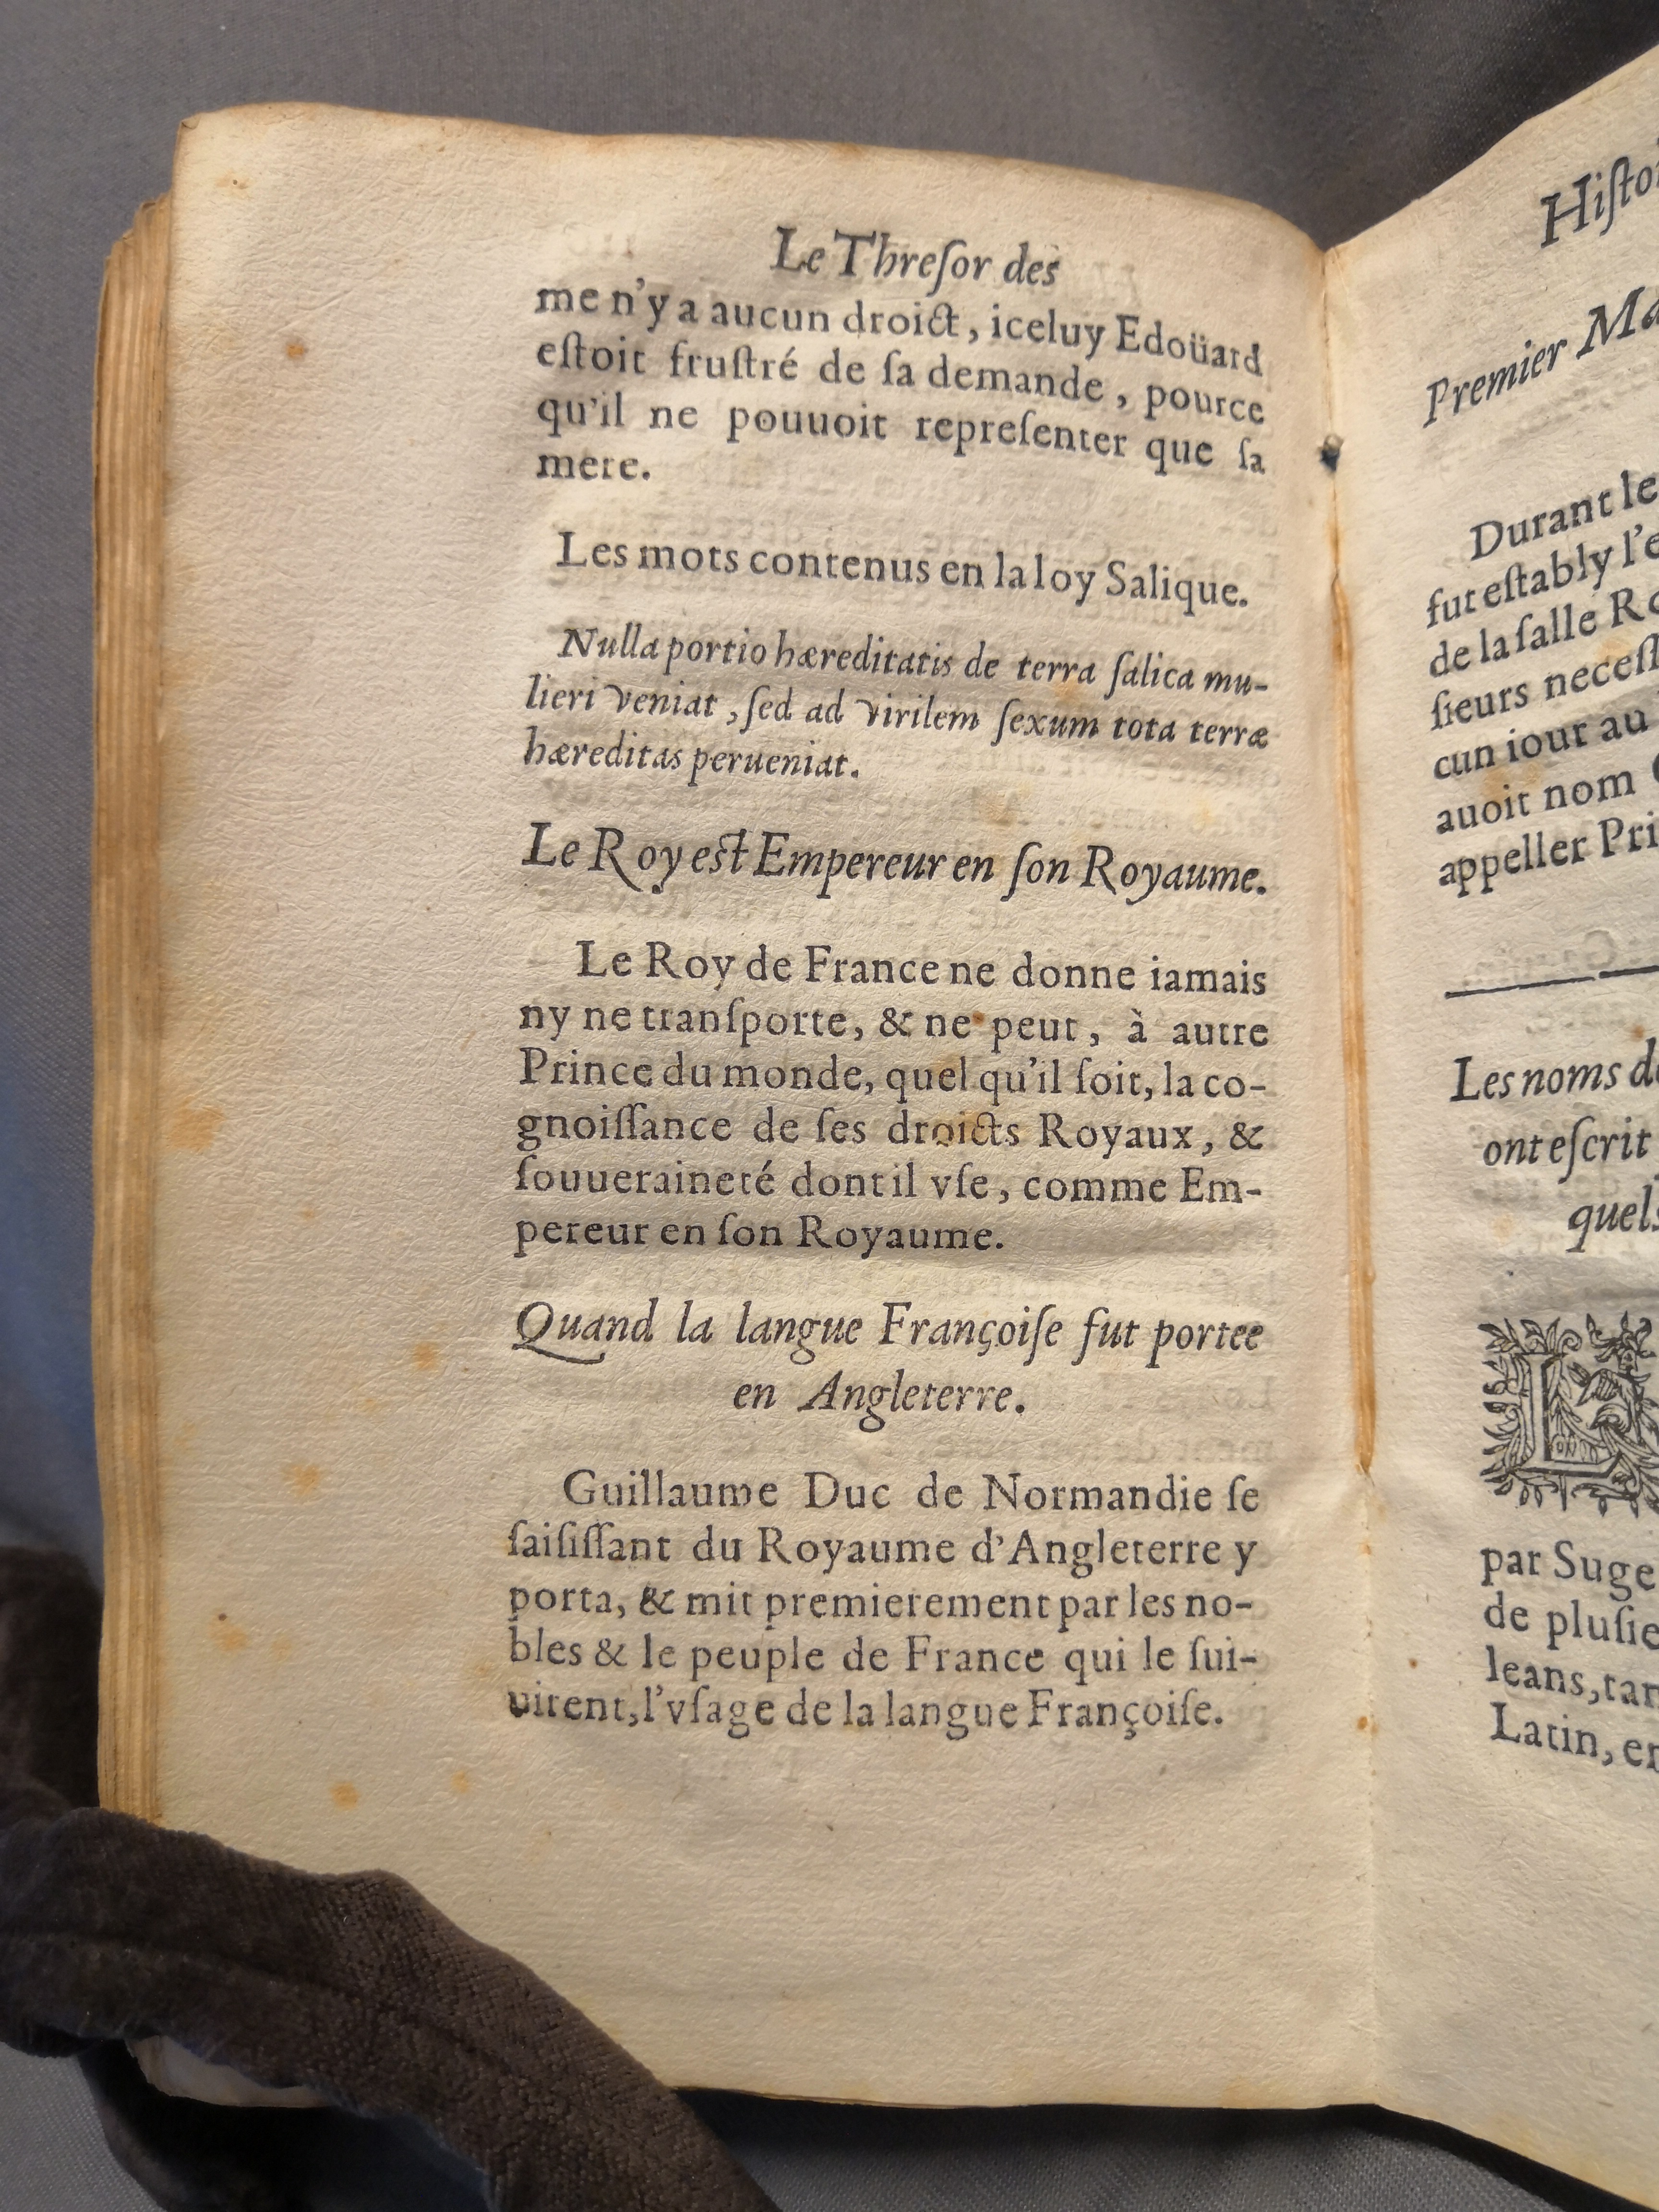 Le Threſor des
me n'y a aucun droict, iceluy Edoüard
eſtoit fruſtré de ſa demande, pource
qu'il ne pouuoit repreſenter que ſa
mere.
Les mots contenus en la loy Salique.
Nulla portio hæreditatis de terra ſalica mu-
lieri veniat, ſed ad virilem ſexum tota terræ
hæreditas perueniat.
Le Roy est Empereur en ſon Royaume.
Le Roy de France ne donne iamais
ny ne tranſporte, & ne peut, à autre
Prince du monde, quel qu'il ſoit, la co-
gnoiſſance de ſes droicts Royaux, &
ſouueraineté dont il vſe, comme Em-
pereur en ſon Royaume.
Quand la langue Françoiſe fut portee
en Angleterre.
Guillaume Duc de Normandie ſe
ſaiſiſſant du Royaume d'Angleterre y
porta, & mit premierement par les no-
bles & le peuple de France qui le ſui-
uirent, l'vſage de la langue Françoiſe.
Premier
Durant le
fut eſtably
de la ſalle
ſieurs
cun iour au
auoit nom
appeller
Les noms
ont eſcrit
L
par
de
leans,
Latin,